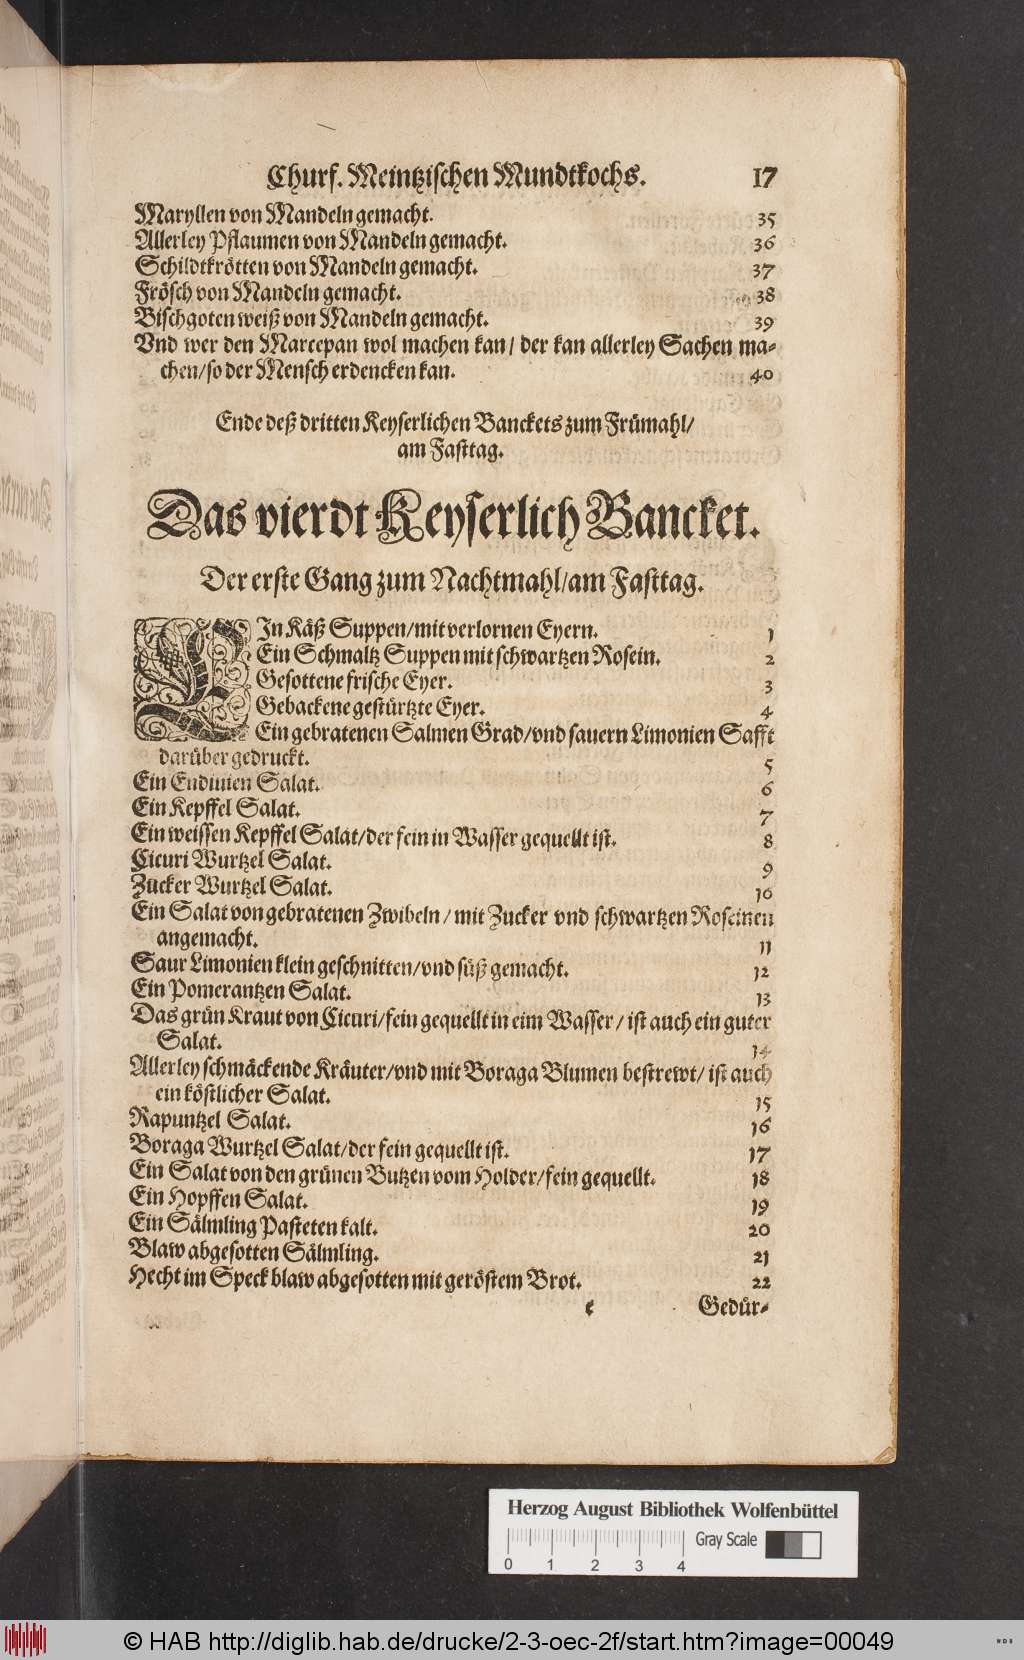 Churf. Meintzischen Mundtkochs. 17
Maryllen von Mandeln gemacht. 35
Allerley Pflaumen von Mandeln gemacht. 36
Schildtkrötten von Mandeln gemacht. 37
Frösch von Mandeln gemacht. 38
Bischgoten weiß von Mandeln gemacht. 39
Vnd wer den Marcepan wol machen kan / der kan allerley Sachen ma-
chen / so der Mensch erdencken kan. 40
Ende deß dritten Keyserlichen Banckets zum Frümahl /
am Fasttag.
Das vierdt Keyserlich Bancket.
Der erste Gang zum Nachtmahl / am Fasttag.
EIn Käß Suppen / mit verlornen Eyern. 1
Ein Schmaltz Suppen mit schwartzen Rosein. 2
Gesottene frische Eyer. 3
Gebackene gestürtzte Eyer. 4
Ein gebratenen Salmen Grad / vnd sauern Limonien Safft
darüber gedruckt. 5
Ein Endiuien Salat. 6
Ein Kepffel Salat. 7
Ein weissen Kepffel Salat / der fein in Wasser gequellt ist. 8
Cicuri Wurtzel Salat. 9
Zucker Wurtzel Salat. 10
Ein Salat von gebratenen Zwibeln / mit Zucker vnd schwartzen Roseinen
angemacht. 11
Saur Limonien klein geschnitten / vnd süß gemacht. 12
Ein Pomerantzen Salat. 13
Das grün Kraut von Cicuri / fein gequellt in eim Wasser / ist auch ein guter
Salat. 14
Allerley schmäckende Kräuter / vnd mit Boraga Blumen bestrewt / ist auch
ein köstlicher Salat. 15
Rapuntzel Salat. 16
Boraga Wurtzel Salat / der fein gequellt ist. 17
Ein Salat von den grünen Butzen vom Holder / fein gequellt. 18
Ein Hopffen Salat. 19
Ein Sälmling Pasteten kalt. 20
Blaw abgesotten Sälmling. 21
Hecht im Speck blaw abgesotten mit geröstem Brot. 22
e Gedür-
Herzog August Bibliothek Wolfenbüttel
Gray Scale
0 1 2 3 4
© HAB http://diglib.hab.de/drucke/2-3-oec-2f/start.htm?image=00049